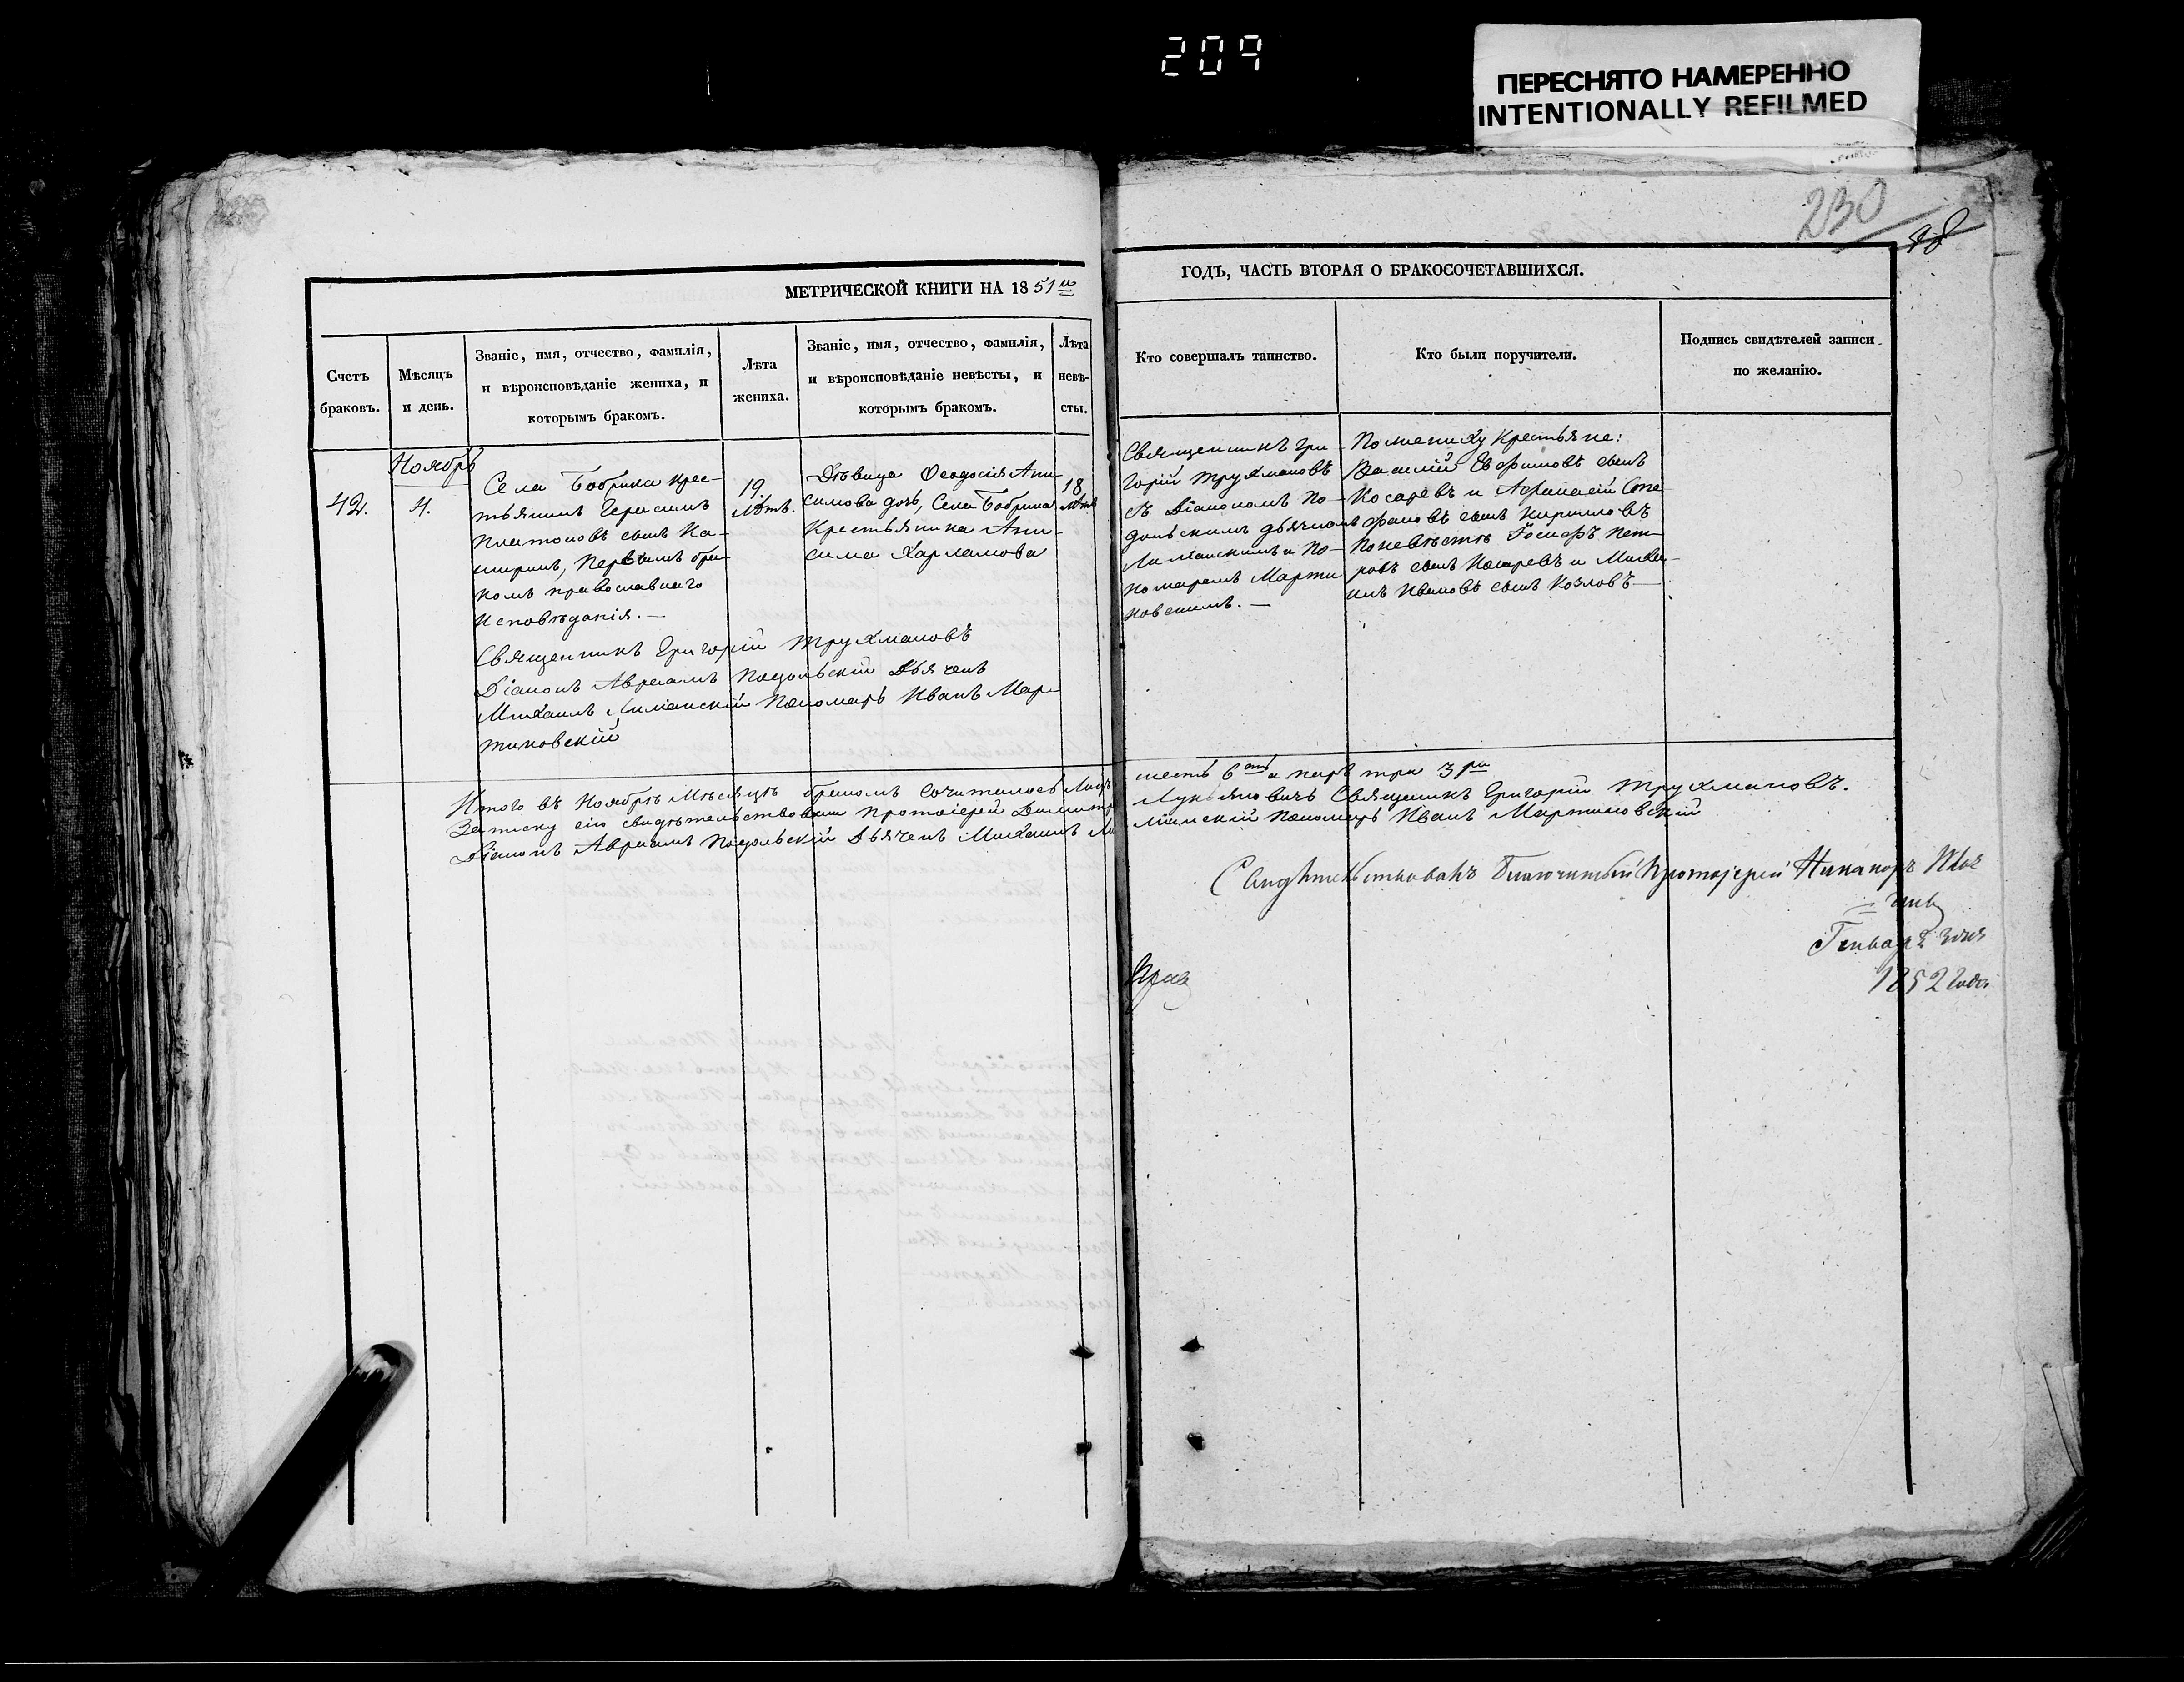 209
ПЕРЕСНЯТО НАМЕРЕННО
INTENTIONALLY REFILMED
230
МЕТРИЧЕСКОЙ КНИГИ НА 1851
ГОДЪ, ЧАСТЬ ВТОРАЯ О БРАКОСОЧЕТАВШИХСЯ.
Счетъ
браковъ.
Мѣсяцъ
и день.
Званіе, имя, отчество, фамилія,
и вѣроисповѣданіе жениха, и
которымъ бракомъ.
Лѣта
жениха.
Званіе, имя, отчество, фамилія,
и вѣроисповѣданіе невѣсты, и
которымъ бракомъ.
Лѣта
невѣ-
сты.
Кто совершалъ таинство.
Кто были поручители.
Подпись свидѣтелей записи
по желанію.
42.
Ноябрь
4.
Села Бобрика крес-
тьянинъ Герасимъ
Платоновъ сынъ Ка-
ширинъ, первымъ бра-
комъ православнаго
исповѣданія. —
19.
лѣтъ.
Дѣвица Ѳеодосія Ани-
симова дочь, Села Бобрика
Крестьянина Ани-
сима Харламова
18
лѣтъ
Священникъ Гри-
горій Трухмановъ
съ Діакономъ По-
дольскимъ дьячкомъ
и По-
номаремъ Марти-
новскимъ. —
По жениху Крестьяне:
Василій Евфимовъ сынъ
Косаревъ и Афанасій Сте-
фановъ сынъ Кирилловъ
По невѣстѣ Іосифъ Пет-
ровъ сынъ Косаревъ и Миха-
илъ Ивановъ сынъ Козловъ
Священникъ Григорій Трухмановъ
Діаконъ Авраамъ Подольскій Дьячекъ
Михаилъ Пономарь Иванъ Мар-
тиновскій
Итого въ Ноябрѣ Мѣсяцѣ бракомъ сочиталось Лицъ шесть 6 а паръ три 3
Записку сію свидѣтельствовали Протоіерей Димитрій Лукьяновичъ Священникъ Григорій Трухмановъ.
Діаконъ Авраамъ Подольскій Дьячекъ Михаилъ Пономарь Иванъ Мартиновскій
Свидѣтельствовалъ Благочинный Протоіерей Никаноръ
1852 года